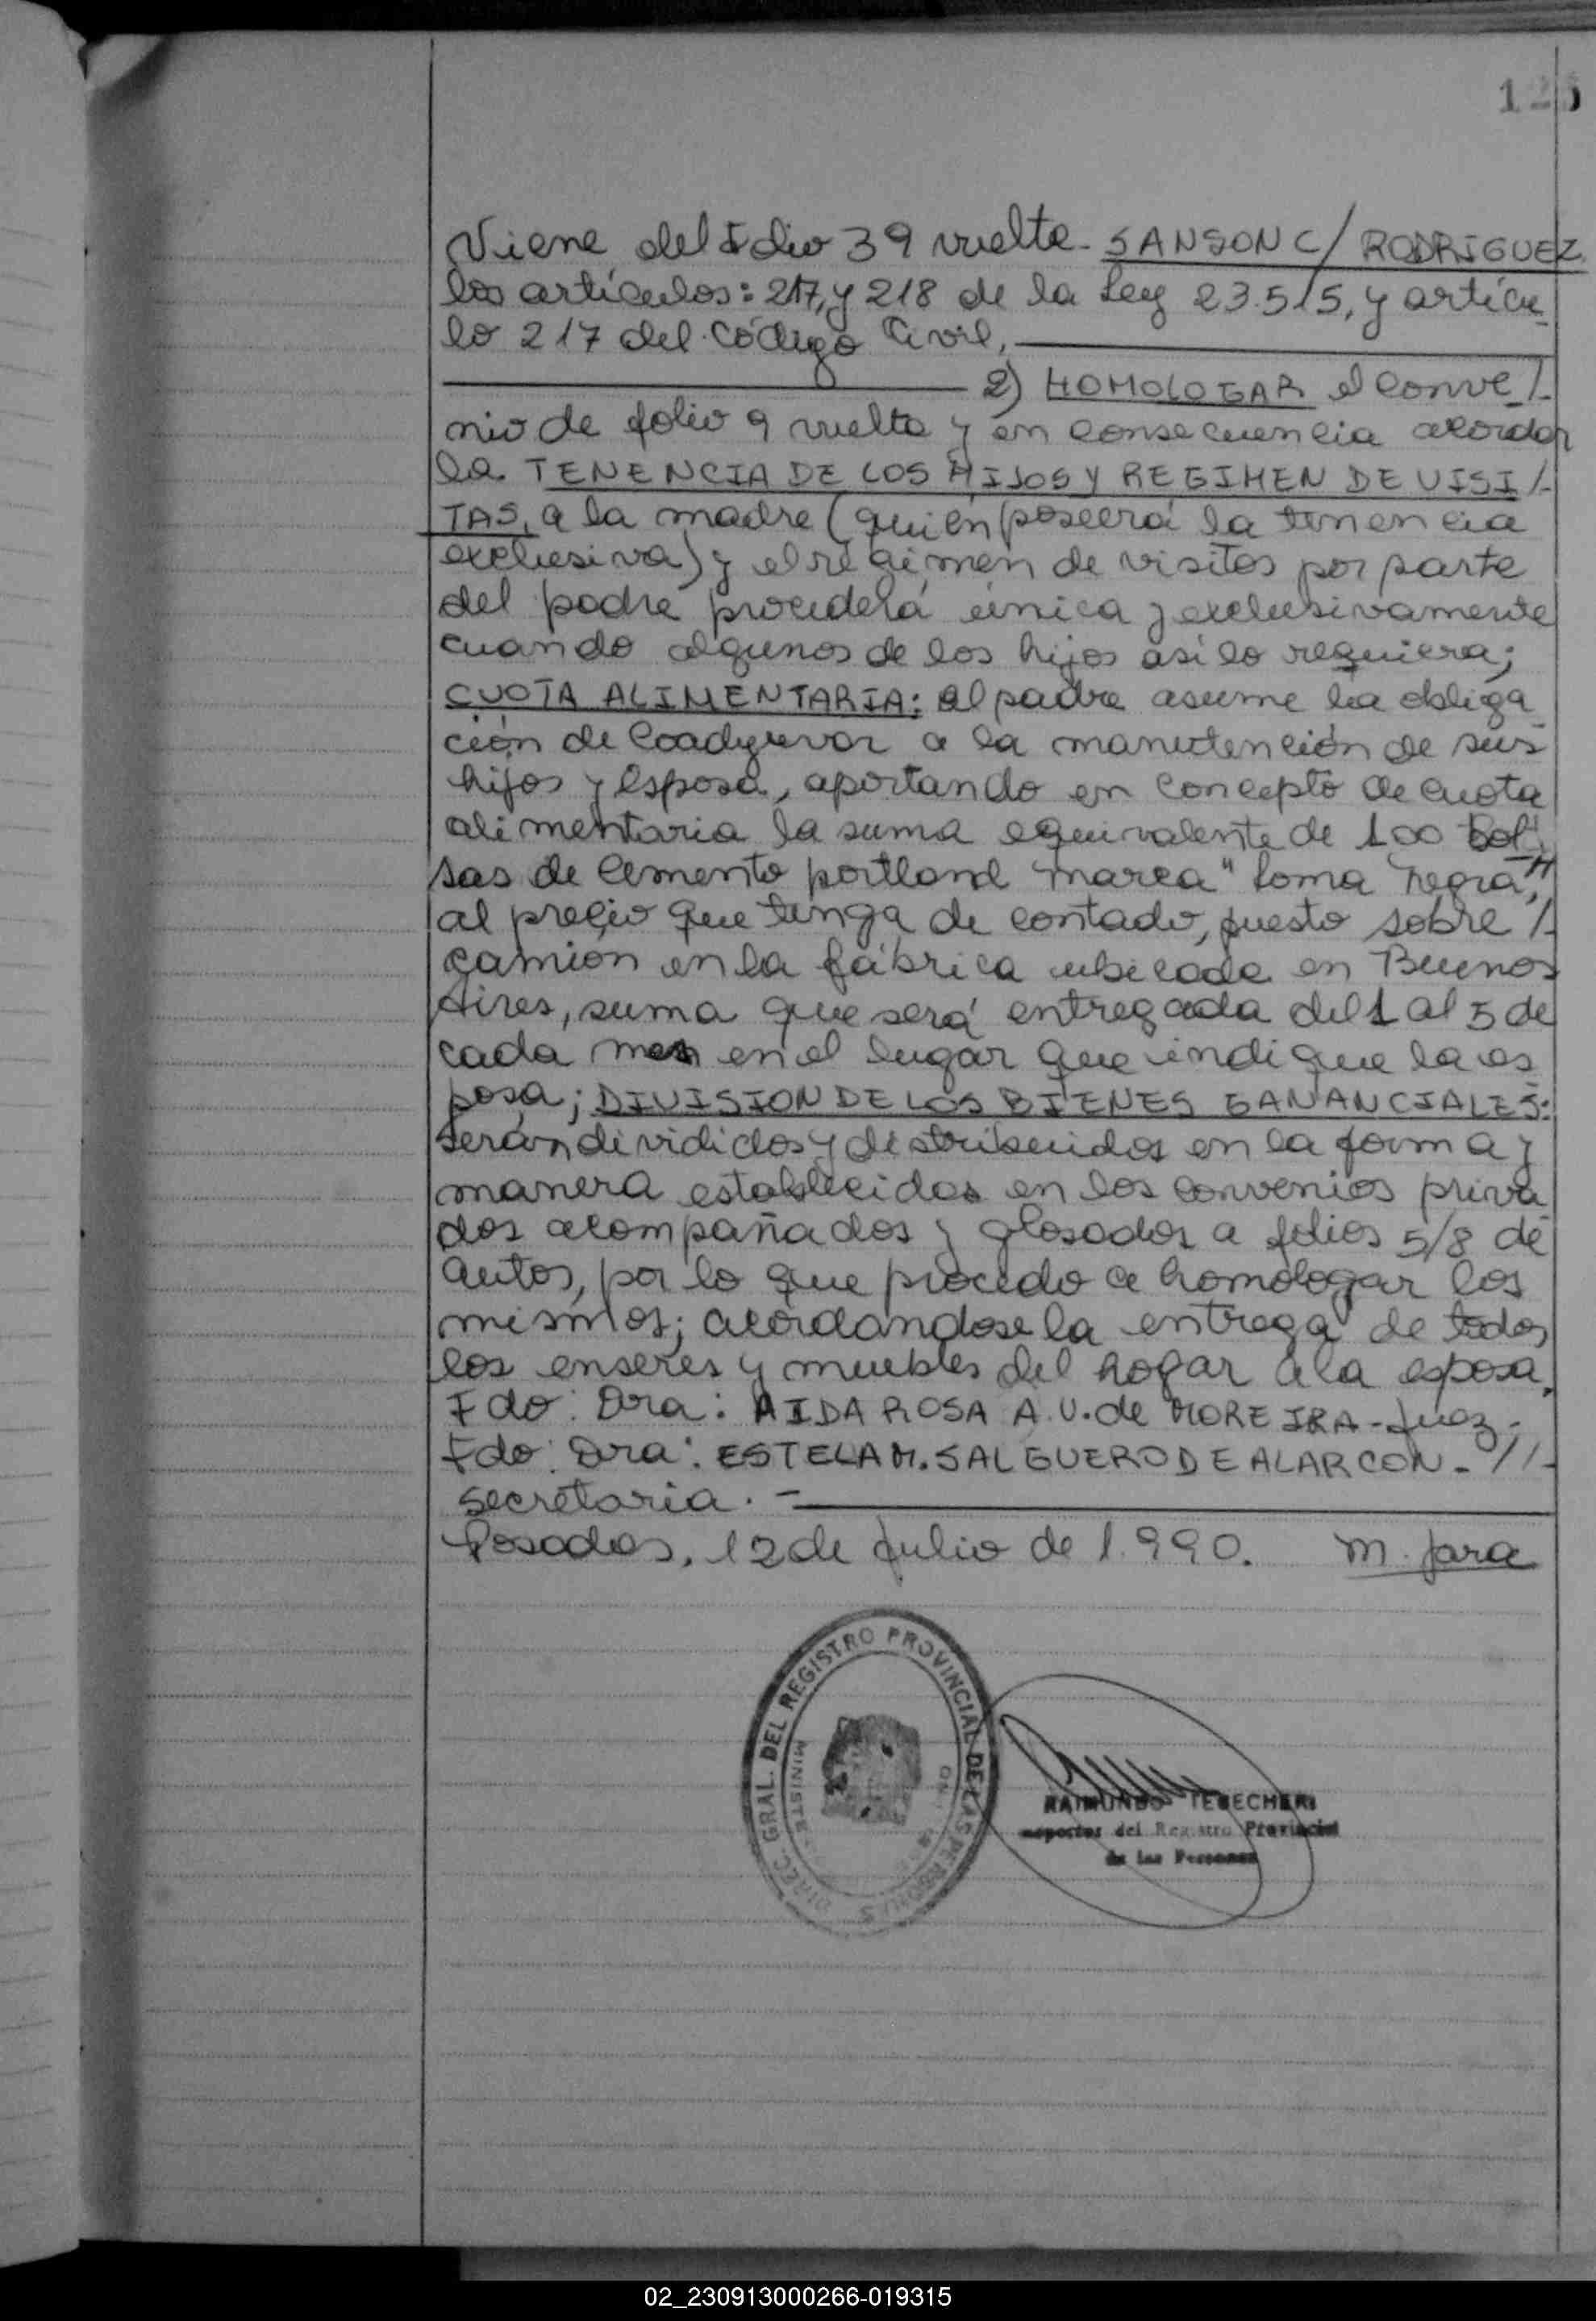 125
Viene del Folio 39 vuelta. SANSON C/ RODRIGUEZ.
los artículos: 217, y 218 de la Ley 23.515, y artícu_
lo 217 del Código Civil,
2) HOMOLOGAR el conve_/-
nio de folio 9 vuelta y en consecuencia acordar
la TENENCIA DE LOS HIJOS Y REGIMEN DE VISI/-
TAS, a la madre (quién poseerá la tenencia
exclusiva) y el régimen de visitas por parte
del padre procederá única y exclusivamente
cuando algunos de los hijos así lo requiera;
CUOTA ALIMENTARIA: el padre asume la obliga_
ción de Coadyuvar a la manutención de sus
hijos y esposa, aportando en concepto de cuota
alimentaria la suma equivalente de 100 bol/-
sas de cemento portland marca "Loma Negra",
al precio que tenga de contado, puesto sobre /-
camión en la fábrica ubicada en Buenos
Aires, suma que será entregada del 1 al 5 de
cada mes en el lugar que indique la es_
posa; DIVISION DE LOS BIENES GANANCIALES:
serán divididos y distribuidos en la forma y
manera establecidos en los convenios priva_
dos acompañados y glosados a folios 5/8 de
autos, por lo que procedo a homologar los
mismos; acordandose la entrega de todos
los enseres y muebles del hogar a la esposa.
Fdo: Dra: AIDA ROSA A.V. de MOREIRA - Juez.
Fdo: Dra: ESTELA M. SALGUERO DE ALARCON. - //-
secretaria. -
Posadas, 12 de Julio de 1.990. M. Jara
DIREC. GRAL. DEL REGISTRO PROVINCIAL DE LAS PERSONAS
RAIMUNDO TEBECHERI
del Registro Provincial
de las Personas
02_230913000266-019315